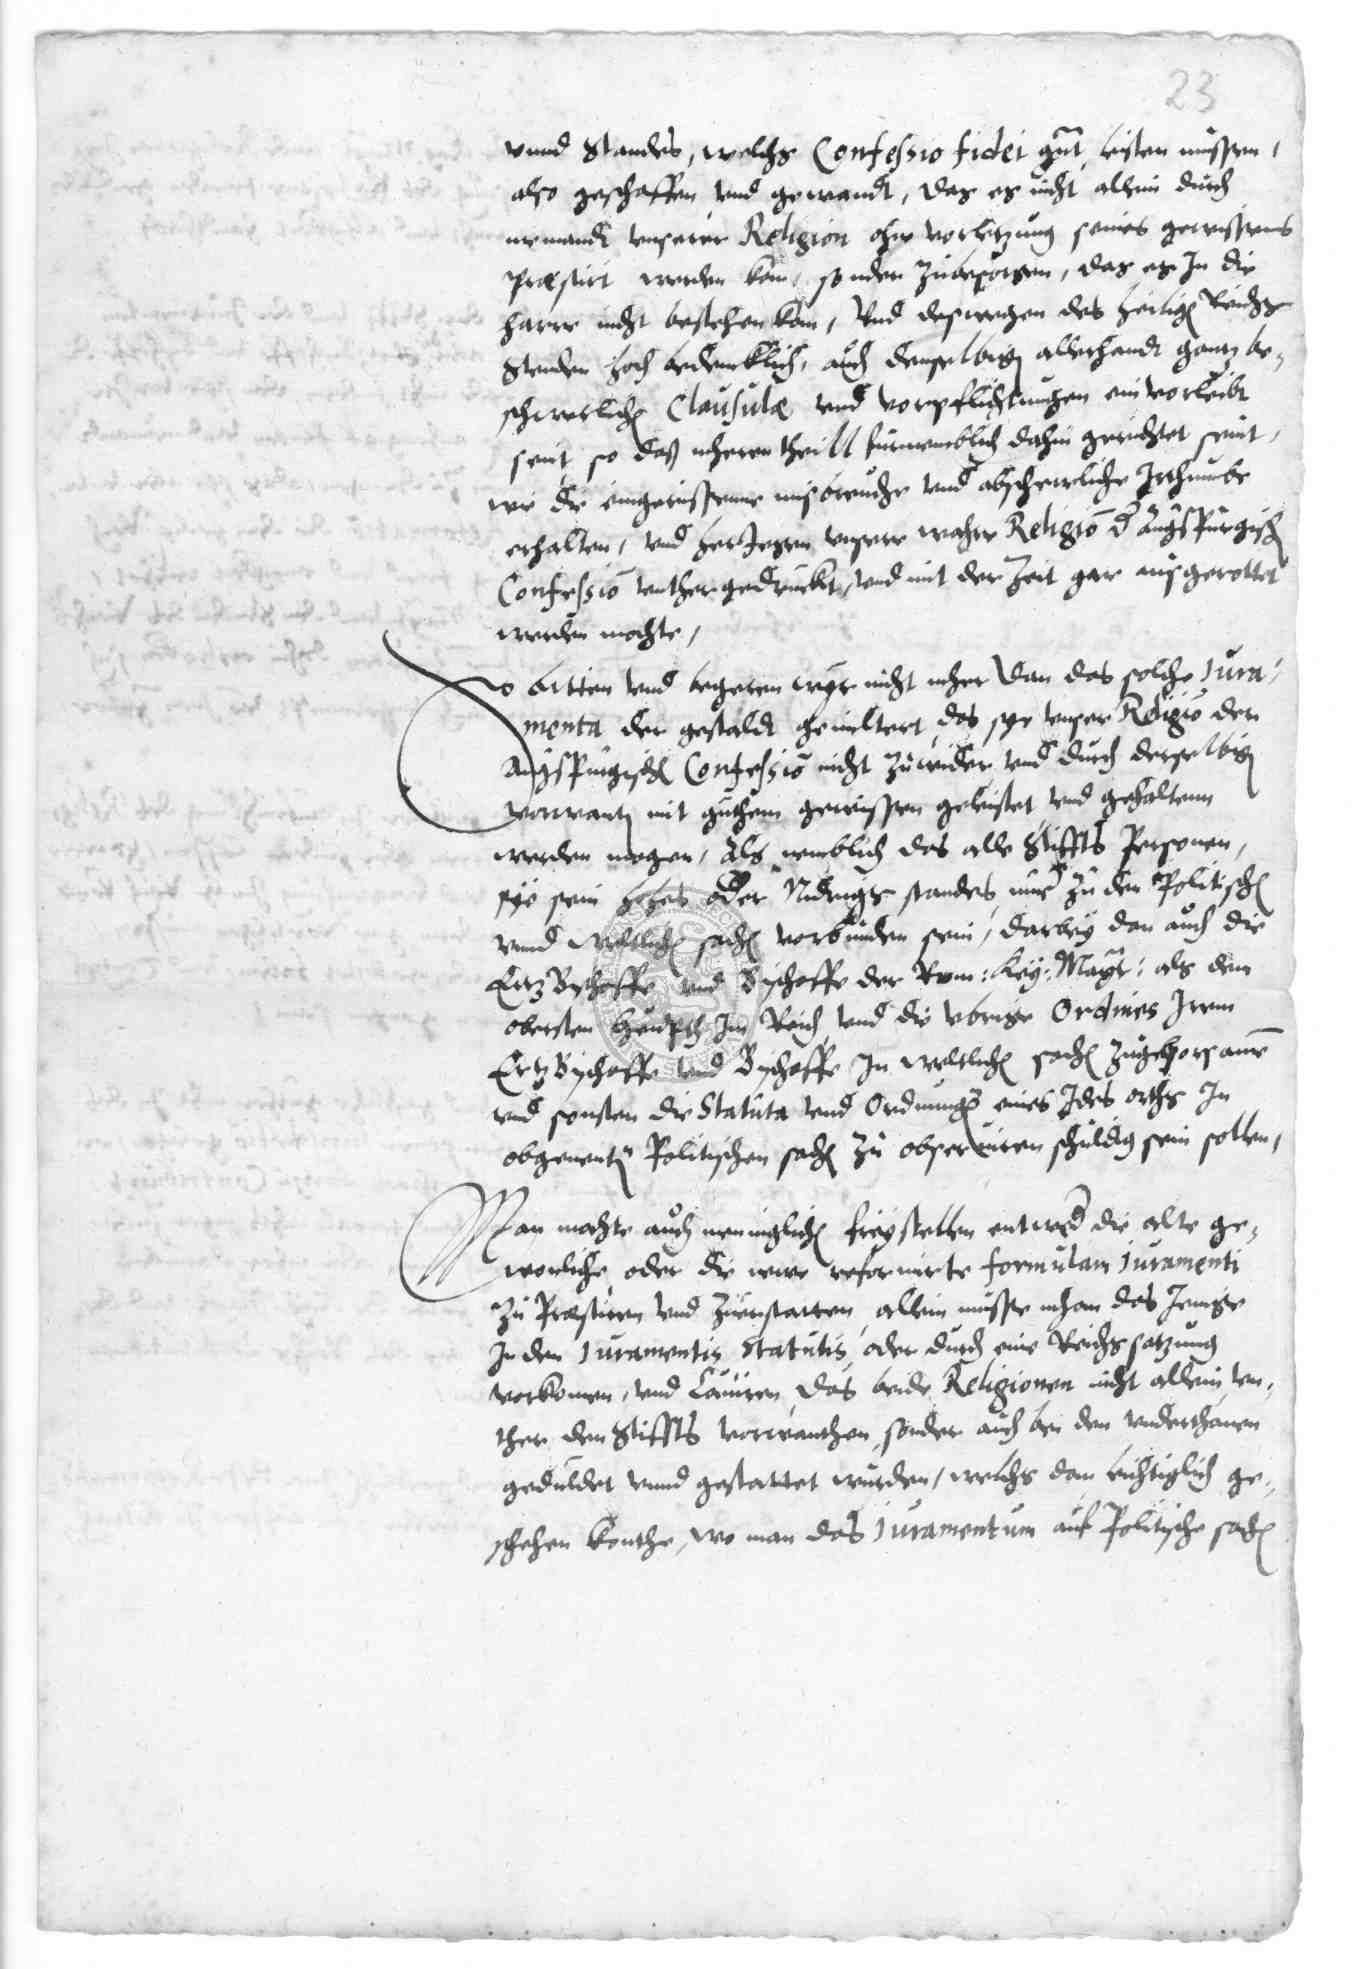 23
vnnd Standes, welchs Confessio fidei gnāt, leisten mussen,
also geschaffen vnd gewandt, das es nicht allein durch
niemandt vnserer Religion ohn vorletzung seines gewissens
Præstirt werden kan, sonder zubesorgen, das es In die
harre nicht bestehen kan, Vnd deswegen des heilig Reichs
Stenden hoch bedencklich, auch denselbig allerhandt gantz be-
schwerliche Clausulæ vnd vorpflichtungen einvorleibt
seint, so das mheren theill furnemblich dahin gerichtet seint,
wie die eingerissene misbreuche vnd abscheuliche Irthumbe
erhalten, vnd herJegen vnsere wahre Religiō d Augspurgisch
Confessiō vnthergedruckt, vnd mit der Zeit gar ausgerottet
werden mochte,
So bitten vnd begeren wyr nicht mher dan das solche Iura-
menta der gestaldt gemiltert, das sye vnser Religiō der
Augspurgisch Confessiō nicht zuwider, vnd durch derselbig
vorwant mit guthem gewissen geleistet vnd gehaltenn
werden mogen, Als nemblich das alle Stiffts Personen,
sye sein hohes oder Nidrigs standes, nur zu den Politisch
vnnd weltlich sach vorbunden sein, darbey dan auch die
ErtzByschoffe vnd Byschoffe der Rom: Key: Mayt: als dem
obersten heupth Im Reich, vnd die vbrige Ordines Irem
ErtzByschoffe vnd Byschoffe In weltlich sach zugehorsamē
vnd sonsten die Statuta vnd Ordnungē eines Jdes orths In
obgenent Politischen sach zu obseruiren schuldig sein sollen,
Man mochte auch menniglich freystellen entwed die alte ge-
wonliche, oder die newe reformirte formulam Iuramenti
zu Præstiren vnd zuerstatten, allein musse mhan das Jenige
In den Iuramentis, Statutis, oder durch eine Reichssatzung
vorkomen, vnd Cauiren, das beide Religionen nicht allein vn-
ther den Stiffts vorwanthen, sonder auch bei den vnderthanen
geduldet vnnd gestattet wurden, welchs dan leichtiglich ge-
schehen konthe, wo man das Iuramentum auf Politische sach